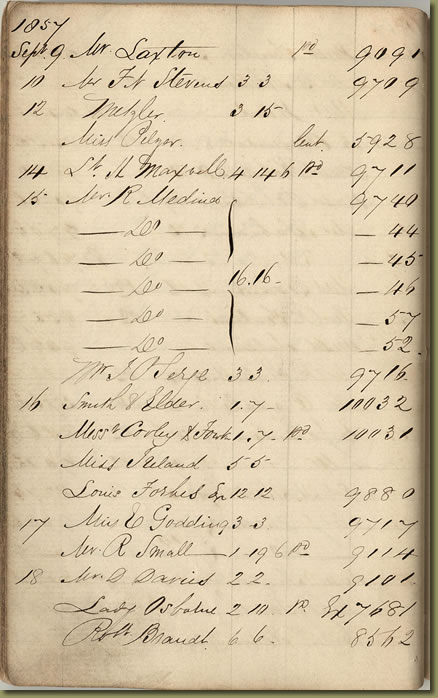 1857
Sept 9 Mr. Laxton pd 9091
10 Mr F. N Stevens 3 3 9709
12 Metzler. 3 15
Miss Pelzer. lent 5928
14 Lt. H Maxwell 4 14 6 pd 9711
15 Mr. R Medina 9740
— Do — — 44
— Do — — 45
— Do — 16.16. — 46
— Do — — 57
— Do — — 52
3 3 9716.
16 Smith & Elder. 1.7- 10032
Messrs Corley & 1.7- pd 10031
Miss Ireland 5 5
Louis Forbes Ex 12 12 9880
17 Miss E Godding 3 3 9717
Mr. R Small — 1 19 6 pd 9114
18 Mr. D Davies 2 2. 9101
Lady Osborne 2 10. Ex 7681
Robt Brandt. 6 6. 8562